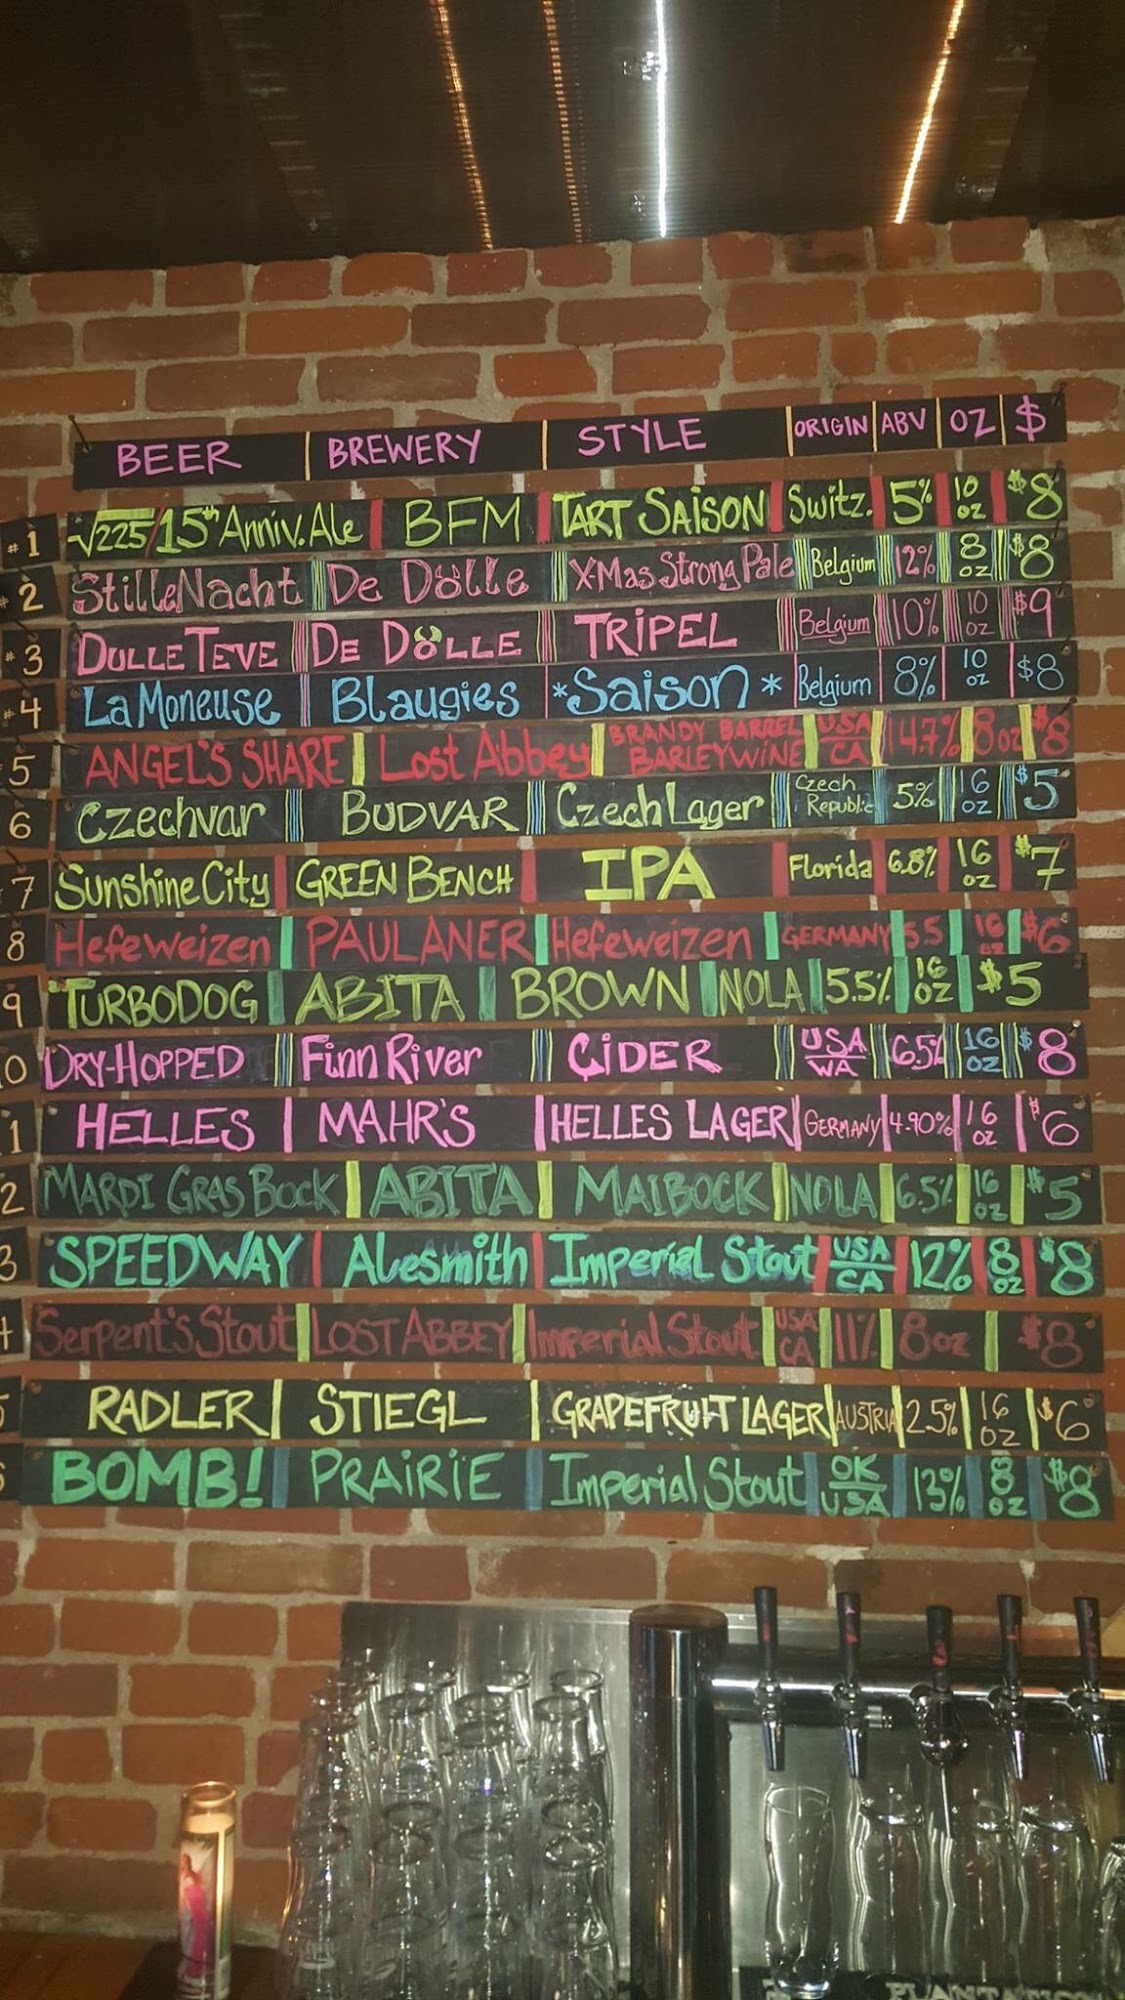 BEER BREWERY STYLE ORIGIN ABV OZ $
#1 √225/15th Anniv. Ale BFM TART SAISON Switz. 5% 10 oz $8
#2 Stille Nacht De Dölle X-Mas Strong Pale Belgium 12% 8 oz $8
#3 DULLE TEVE DE DÖLLE TRIPEL Belgium 10% 10 oz $9
#4 La Moneuse Blaugies *Saison* Belgium 8% 10 oz $8
5 ANGEL'S SHARE Lost Abbey BRANDY BARREL BARLEYWINE USA CA 14.7% 8oz $8
6 Czechvar BUDVAR Czech Lager Czech Republic 5% 16 oz $5
7 Sunshine City GREEN BENCH IPA Florida 6.8% 16 oz $7
8 Hefeweizen PAULANER Hefeweizen GERMANY 5.5 16 oz $6
9 TURBODOG ABITA BROWN NOLA 5.5% 16 OZ $5
0 DRY-HOPPED Finn River CiDER USA WA 6.5% 16 OZ $8
1 HELLES MAHR'S HELLES LAGER GERMANY 4.90% 16 OZ $6
2 MARDI GRAS BOCK ABITA MAIBOCK NOLA 6.5% 16 OZ $5
3 SPEEDWAY Alesmith Imperial Stout USA CA 12% 8 OZ $8
4 Serpent's Stout LOST ABBEY Imperial Stout USA CA 11% 8oz $8
5 RADLER STIEGL GRAPEFRUIT LAGER AUSTRIA 2.5% 16 OZ $6
6 BOMB! PRAIRIE Imperial Stout OK USA 13% 8 OZ $8